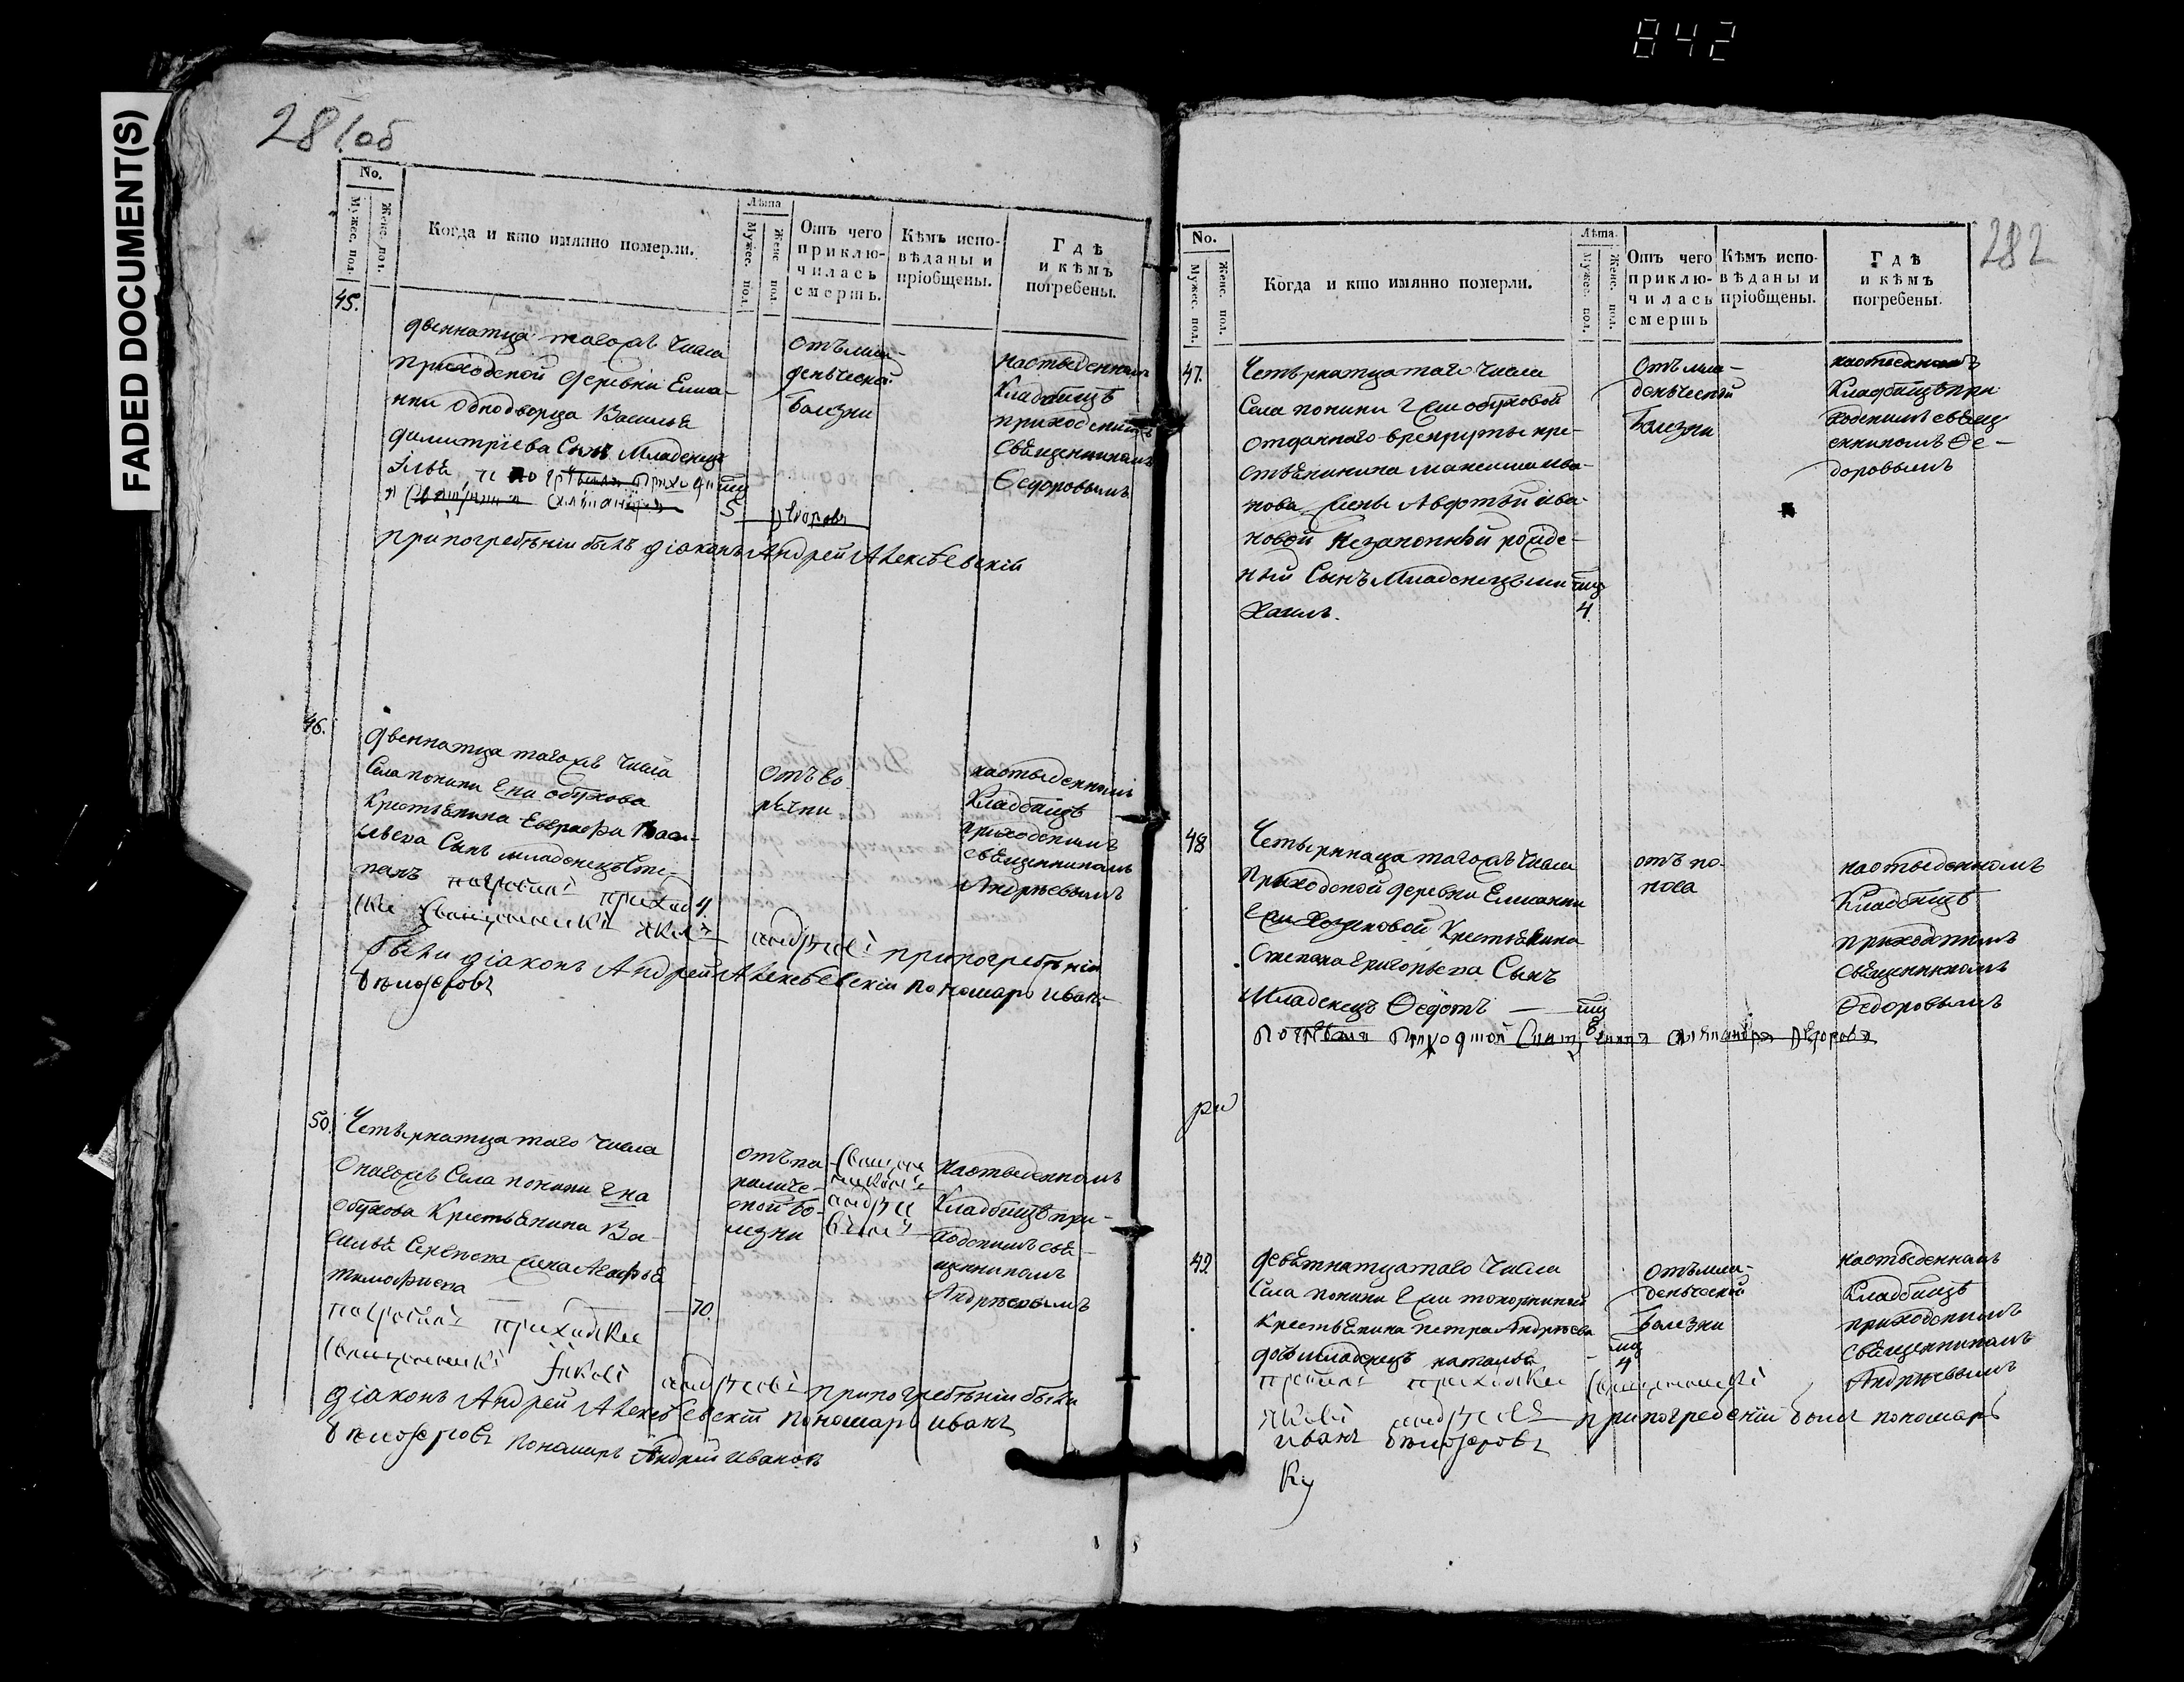 842
FADED DOCUMENT(S)
281.об
No.
Мужес. пол.
Женс. пол.
Когда и кто имянно померли.
Лѣта
Мужес. пол.
Женс пол.
Отъ чего приключилась смерть.
Кѣмъ исповѣданы и пріобщены.
Гдѣ и кѣмъ погребены.
45.
двеннатца тагожъ числа
приходской деревни Елма-
нки однодворца Василья
Димитріева Сынъ Младенецъ
5
Отъ мла-
денческой
Болезни
на отведенномъ
Кладбищѣ
приходскимъ
Священникомъ
Ѳедоровымъ
при погребѣніи былъ діаконъ Андрей Алексѣевскій
46.
двеннатца тагожъ числа
Села поники Гна обухова
Крестьянина Евграфа Васи-
льева Сынъ младенецъ Сте-
панъ погребалъ приход
4.
Отъ во
на отведенномъ
Кладбищѣ
приходскимъ
священникомъ
Андрѣевымъ
андрѣевъ при погребѣніи
были діаконъ Андрей Алексѣевскій пономарь иванъ
бѣлозеровъ
50.
Четырнатцатаго числа
Онагожъ Села поники Гна
обухова Крестьянина Ва-
силья Сергѣева жена Агафья
тимофиева
70.
отъ па
раличе-
ской бо-
лезни
на отведенномъ
Кладбищѣ при-
ходскимъ свя-
щенникомъ
Андрѣевымъ
погребалъ
андрѣевъ при погребѣніи были
діаконъ Андрей Алексѣевскій пономарь иванъ
бѣлозеровъ пономарь Андрей Ивановъ
282
No.
Мужес. пол.
Женс. пол.
Когда и кто имянно померли.
Лѣта.
Мужес. пол.
Женс. пол.
Отъ чего приключилась смерть
Кѣмъ исповѣданы и пріобщены.
Гдѣ и кѣмъ погребены.
47.
Четырнатцатаго числа
Села поники Гжи обуховой
отданнаго врекруты кре-
стьянина максима ива-
нова жены Авдотьи ива-
новой незаконнѣй рожде-
ный Сынъ Младенецъ ми
хаилъ.
4.
Отъ мла-
денческой
Болезни
на отведенномъ
Кладбищѣ при
ходскимъ свящ
енникомъ Ѳе-
доровымъ
48
Четырннаца тагожъ числа
Приходской деревни Елманки
Гжи Крестьянина
Степана Григорьева Сынъ
Младенецъ Ѳедотъ
отъ по-
носа
на отведенномъ
Кладбищѣ
приходскимъ
священникомъ
Ѳедоровымъ
49.
девятнатцатаго числа
Села поники Гжи
Крестьянина петра Андрѣева
дочь младенецъ наталья
4
Отъ мла-
денческой
Болезни
на отведенномъ
Кладбищѣ
приходскимъ
священникомъ
Андрѣевымъ
при погребеніи былъ пономарь
иванъ бѣлозеровъ